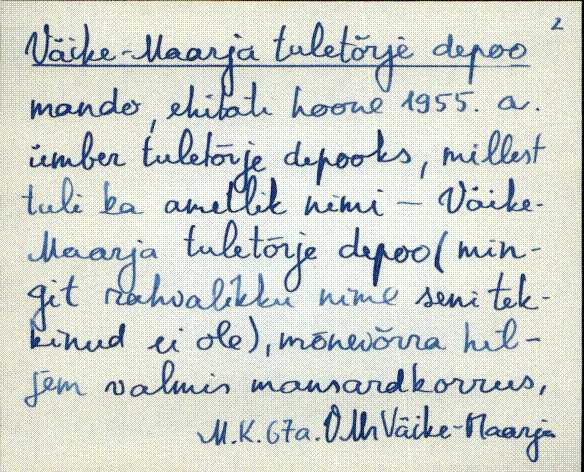 2
Väike-Maarja tuletõrje depoo
mando, ehitati hoone 1955. a.
ümber tuletõrje depooks, millest
tuli ka ametlik nimi – Väike-
Maarja tuletõrje depoo (min-
git rahvalikku nime seni tek-
kinud ei ole), mõnevõrra hil-
jem valmis mansardkorrus,
M.K. 67a. Väike-Maarja